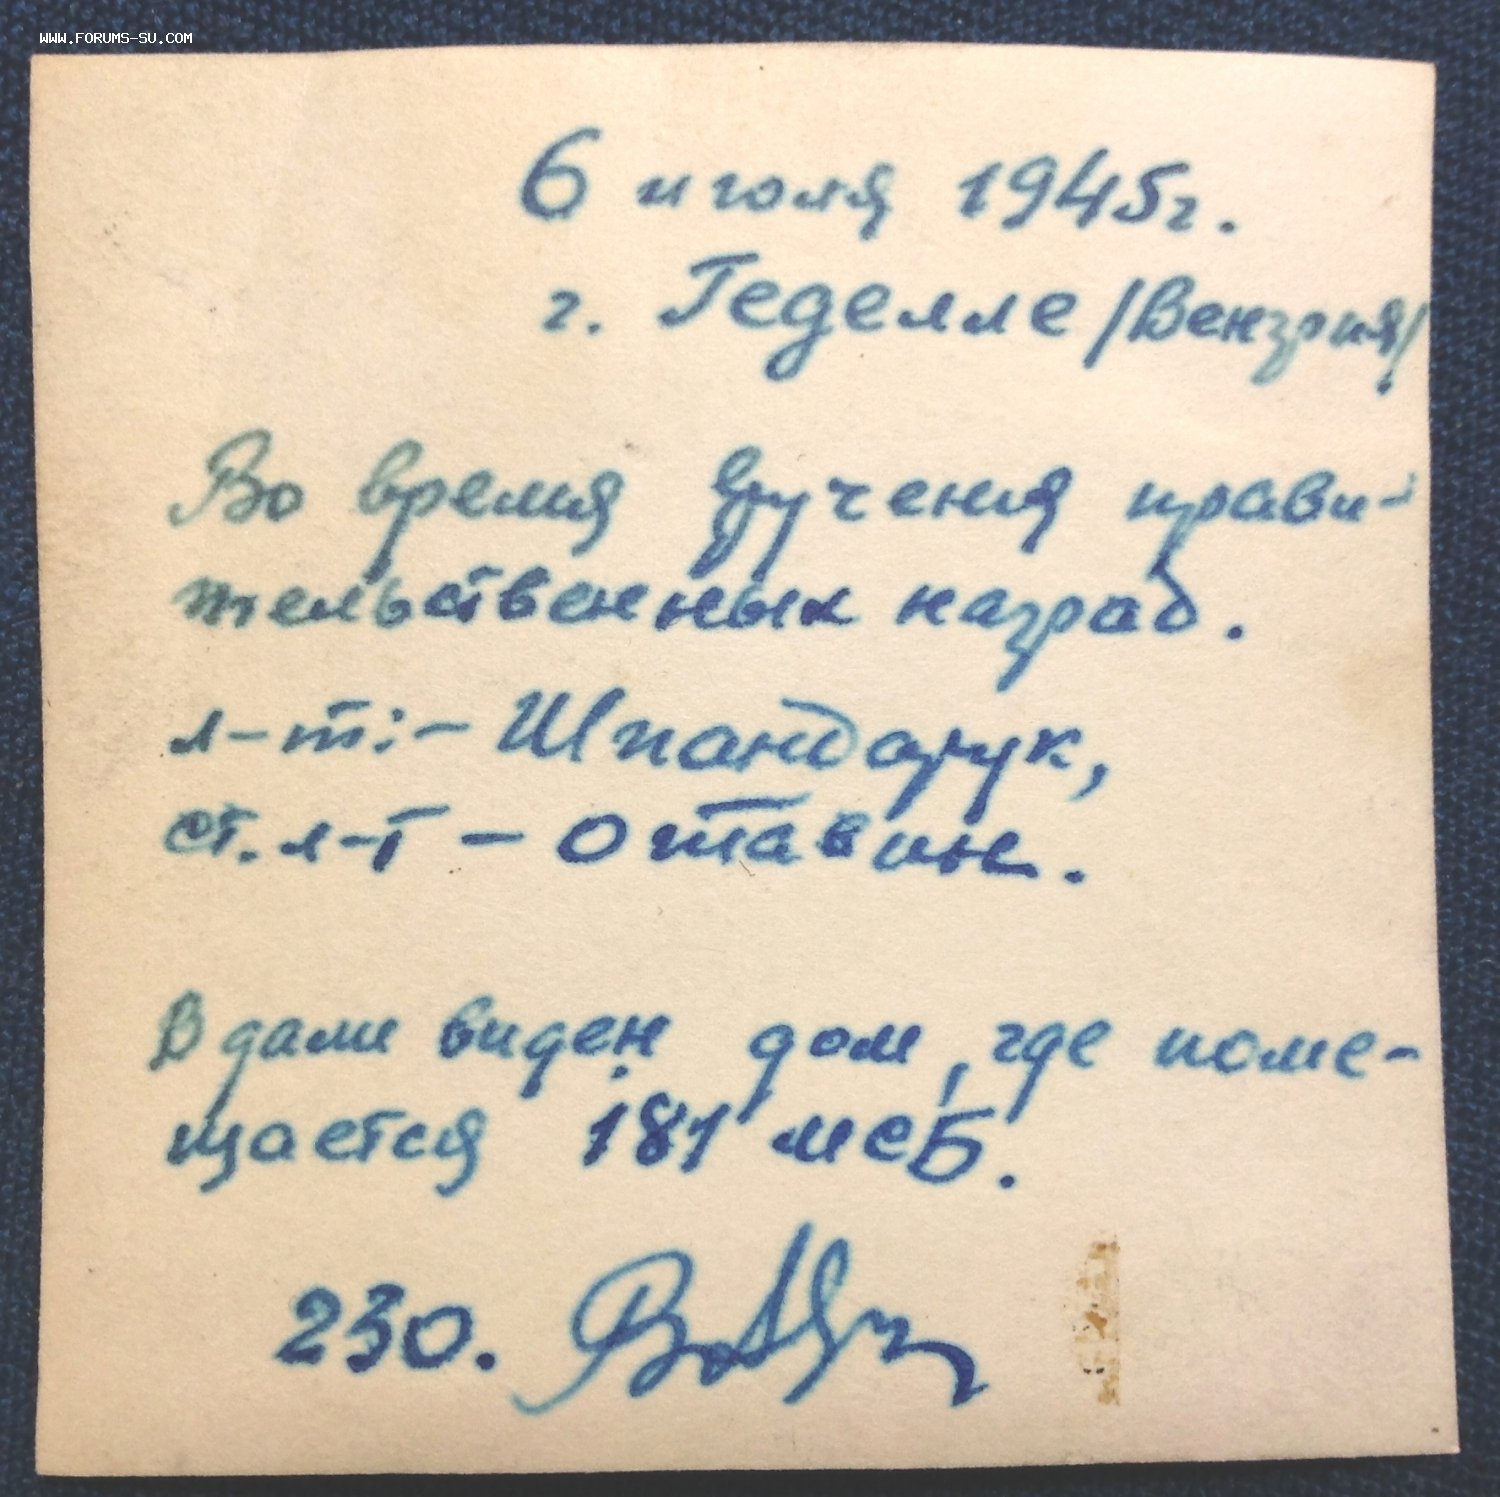 WWW.FORUMS-SU.COM
6 июля 1945г.
г. Геделле /Венгрия/.
Во время вручения прави-
тельственных наград.
л-т:- Шпандарук,
ст. л-т - Отавин.
Вдали виден дом, где поме-
щается 181 мсБ.
230.